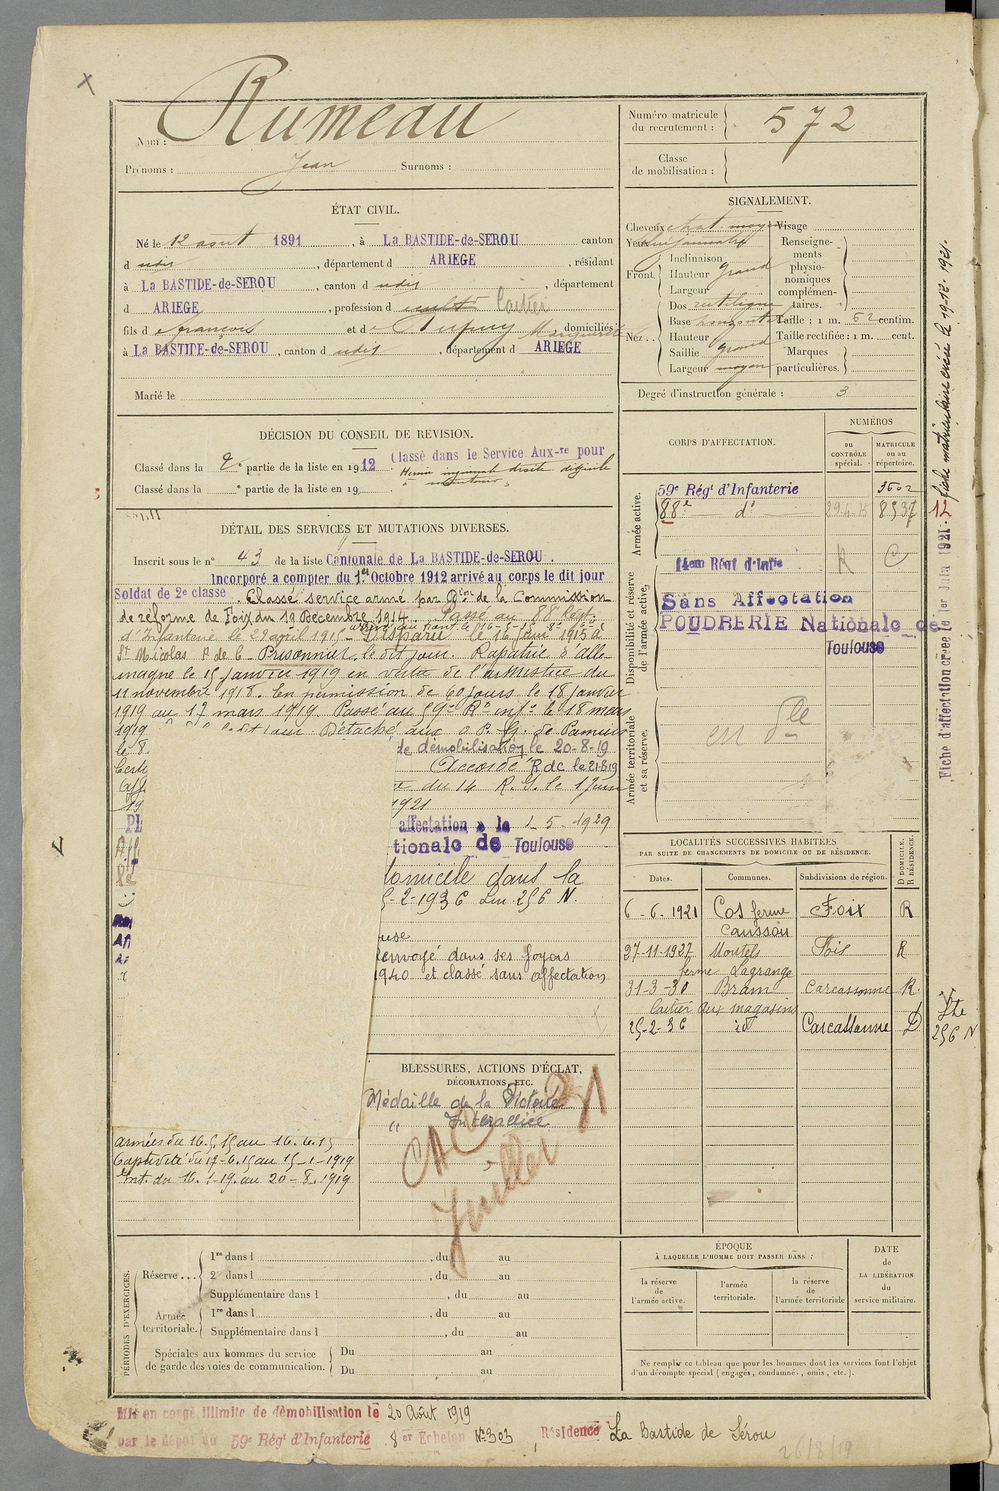 Nom : Rumeau
Prénoms : Jean Surnoms :
Numéro matricule du recrutement : 572
Classe de mobilisation :
ÉTAT CIVIL.
Né le 12 août 1891, à La BASTIDE-de-SEROU canton
d udis, département d ARIEGE, résidant
à La BASTIDE-de-SEROU, canton d udis, département
d ARIEGE, profession d cultr Cartier
fils d François et de Dufuy Marguerite, domiciliés
à La BASTIDE-de-SEROU, canton d udis, département d ARIEGE
Marié le
SIGNALEMENT.
Cheveux chat moyen Visage
Yeux
Renseignements physionomiques complémentaires.
Front.
Inclinaison
Hauteur grand
Largeur
Nez..
Dos rectiligne
Base horizontal
Hauteur
Saillie grand
Largeur moyen
Taille : 1 m. 62 centim.
Taille rectifiée : 1 m. cent.
Marques particulières.
Degré d'instruction générale : 3
DÉCISION DU CONSEIL DE REVISION.
Classé dans la 2e partie de la liste en 1912 Classé dans le Service Aux-re pour
Hernie inguinale droite
Classé dans la e partie de la liste en 19
DÉTAIL DES SERVICES ET MUTATIONS DIVERSES.
Inscrit sous le n° 43 de la liste Cantonale de La BASTIDE-de-SEROU
Incorporé a compter du 1er Octobre 1912 arrivé au corps le dit jour
Soldat de 2e classe. Classé service armé par Don de la Commission
de réforme de Foix du 19 Décembre 1914. Passé au 88e Régt
d'Infanterie le 29 avril 1915 Disparu le 16 Juin 1915 à
St Nicolas P de C Prisonnier le dit jour. Rapatrié d'Alle-
magne le 15 janvier 1919 en vertu de l'armistice du
11 novembre 1918. En permission de 60 jours le 18 janvier
1919 au 17 mars 1919. Passé au 59e Rt inf. le 18 mars
1919 Détaché aux de Pamiers
le 8 de démobilisation le 20-8-19
Accordé RdC le 21-8-19
du 14 R.I. le 1 Juin
1921
affectation à la 1-5-1929
tionale de Toulouse
domicile dans la
5-2-1936 Lm 256 N.
renvoyé dans ses foyers
1940 et classé sans affectation
CORPS D'AFFECTATION.
NUMÉROS
au CONTRÔLE spécial.
MATRICULE ou au répertoire.
Armée active.
59e Régt d'Infanterie 3602
88e d° 29.4.15 8537
Disponibilité et réserve de l'armée active,
14em Régt d'Infie R C
Sans Affectation
POUDRERIE Nationale de
Toulouse
Armée territoriale et sa réserve,
12 fiche matriculaire créée le 19.12.1921.
Fiche d'affectation créée le 1er Juin 1921
LOCALITÉS SUCCESSIVES HABITÉES
PAR SUITE DE CHANGEMENTS DE DOMICILE OU DE RÉSIDENCE.
Dates. Communes. Subdivisions de région. D DOMICILE. R RÉSIDENCE.
6-6-1921 Cos ferme Caussou Foix R
27-11-1927 Montels ferme Lagrange Foix R
31-3-30 Bram Carcassonne R.
Cartier aux magasins
25-2-36 id Carcassonne D
256 N
BLESSURES, ACTIONS D'ÉCLAT,
DÉCORATIONS, ETC.
Médaille de la Victoire
" Interalliée
Juillet 31
armées du 16.5.15 au 16.6.15
Captivité du 17-6.15 au 15-1-1919
Int. du 16.1-19. au 20-8.1919
PÉRIODES D'EXERCICES.
Réserve...
1re dans l , du au
2e dans l , du au
Supplémentaire dans l , du au
Armée territoriale.
1re dans l , du au
Supplémentaire dans l , du au
Spéciales aux hommes du service de garde des voies de communication.
Du au
Du au
ÉPOQUE
À LAQUELLE L'HOMME DOIT PASSER DANS :
la réserve de l'armée active.
l'armée territoriale.
la réserve de l'armée territoriale
DATE de LA LIBÉRATION du service militaire.
Ne remplir ce tableau que pour les hommes dont les services font l'objet
d'un décompte spécial (engagés, condamnés, omis, etc.).
Mis en congé illimité de démobilisation le 20 Août 1919
par le dépôt du 59e Régt d'Infanterie 8er Echelon N° 303 Résidence La Bastide de Sérou
26/8/19